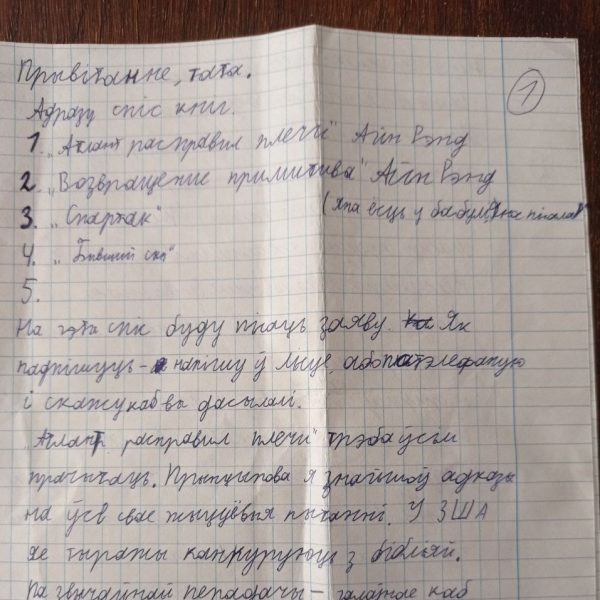 Прывітанне, тата.
1
Адразу спіс кніг.
1. „Атлант расправил плечи" Айн Рэнд
2. „Возвращение примитива" Айн Рэнд
3. „Спартак"
(яна ёсць у бабулі,
4. „
5.
На гэты спіс буду пісаць заяву. Як
падпішуць - напішу ў лісце, або патэлефаную
і скажу каб вы даслалі.
„Атлант расправил плечи" трэба ўсім
прачытаць. Прынцыпова я знайшоў адказы
на ўсе свае жыццёвыя пытанні. У ЗША
яе тыражы канкуруюць з бібліяй.
Па звычайнай перадачы - галоўнае каб